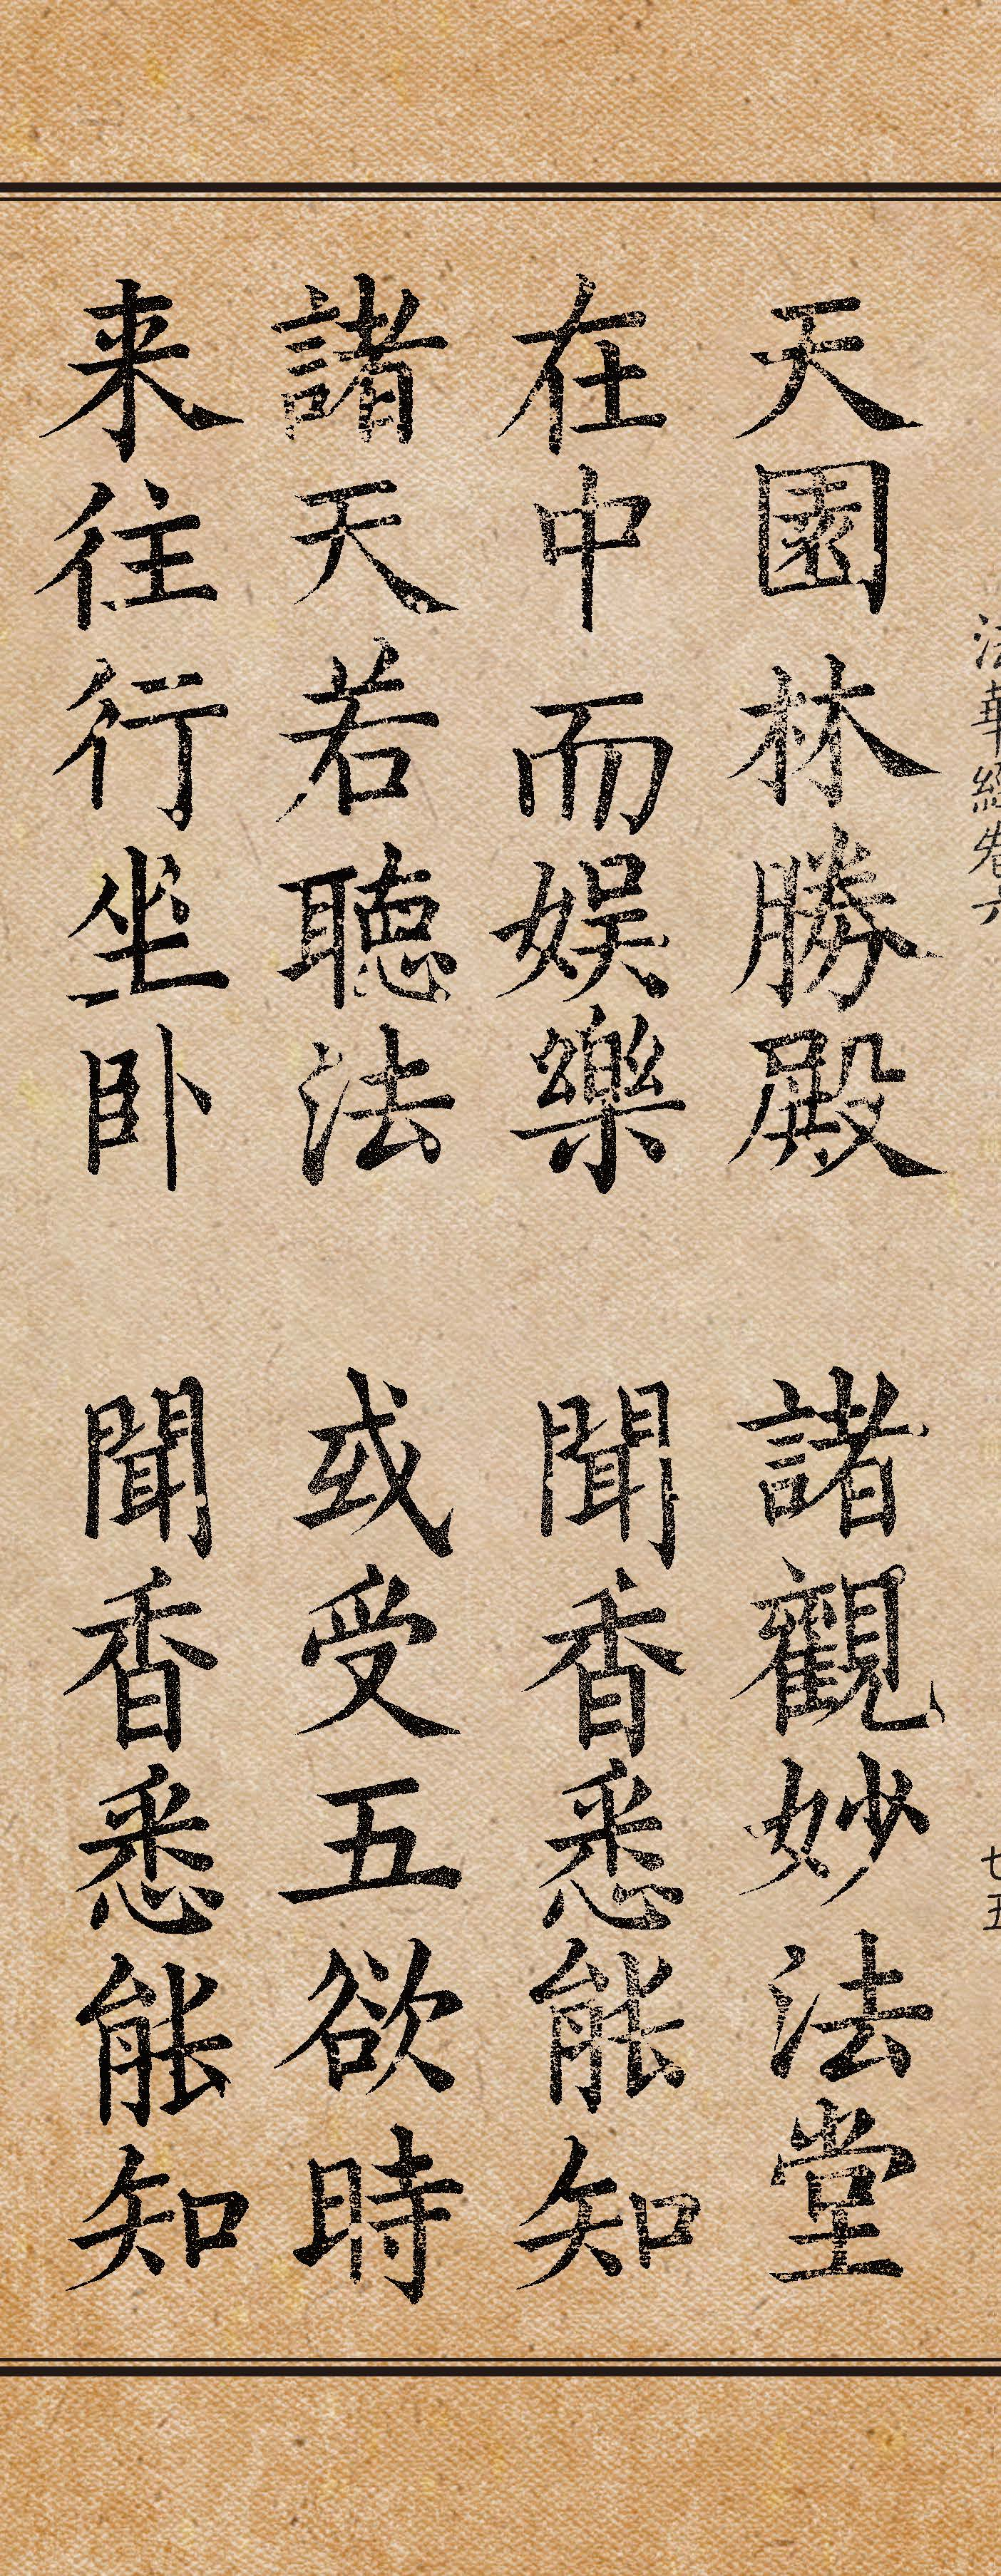 法華經卷六 七五
天園林勝殿 諸觀妙法堂
在中而娯樂 聞香悉能知
諸天若聽法 或受五欲時
来往行坐卧 聞香悉能知